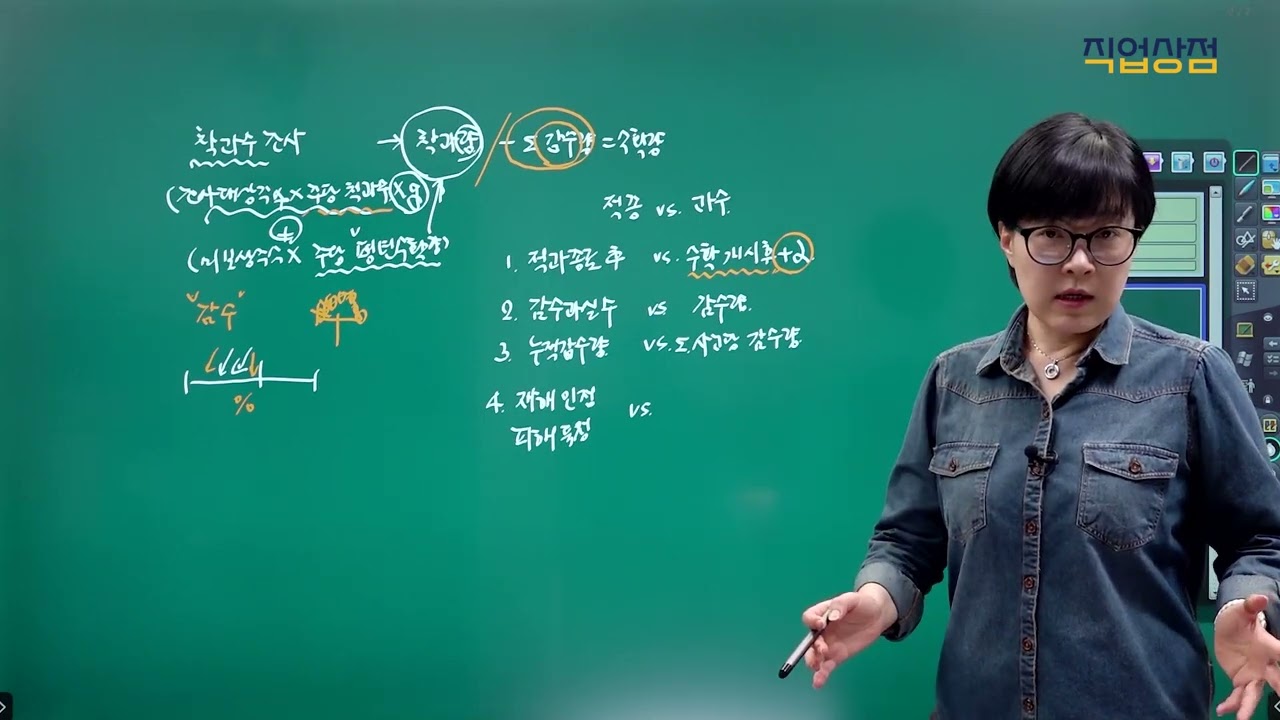 직업상점
착과수 조사 → 착과량 - Σ 감수량 = 수확량
(조사대상주수 × 주당 착과수 × g
+
(미보상주수 × 주당 평년수확량)
적종 vs. 과수.
1. 적과종료 후 vs. 수확개시후 +2
"감수"
2. 감수과실수 vs 감수량.
3. 누적감수량 vs. Σ사고당 감수량.
%
4. 재해 인정 vs.
피해 특정